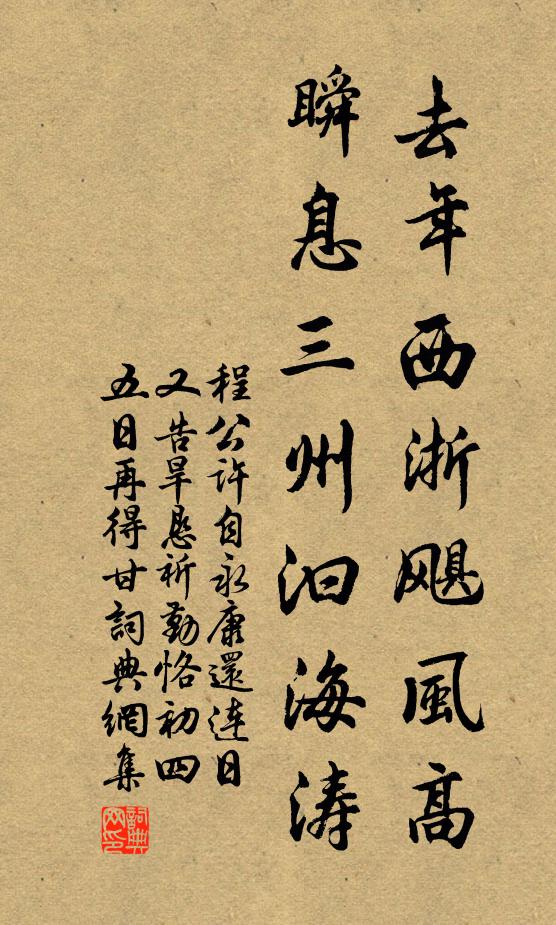 去年西浙颶風高
瞬息三州汩海涛
程公许自永康還连日
又告旱恳祈勤恪初四
五日再得甘詞典網集
詞典网印